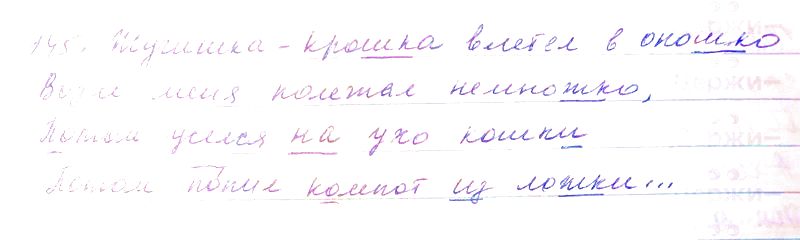 145. Жучишка - крошка влетел в окошко
Возле меня полетал немножко,
Потом уселся на ухо кошки
Потом попил компот из ложки...